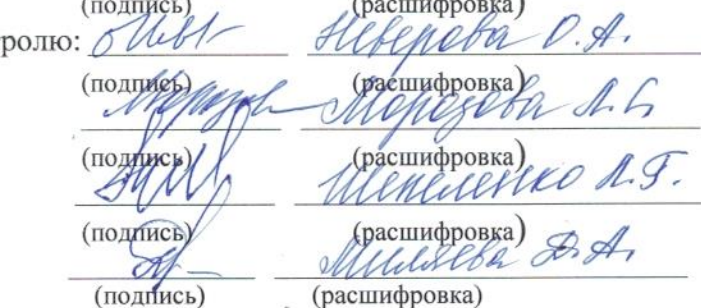 (подпись) (расшифровка)
ролю: Неверова О.А.
(подпись) (расшифровка)
Морозова Л.С.
(подпись) (расшифровка)
Шепеленко Л.Г.
(подпись) (расшифровка)
Миляева Д.А.
(подпись) (расшифровка)